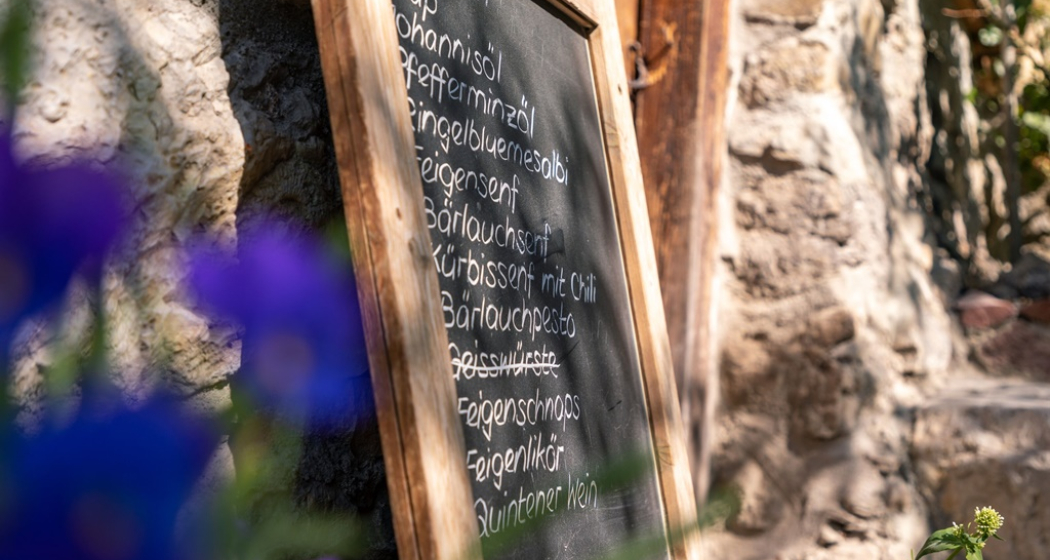 ohannisöl
Pfefferminzöl
Ringelbluemesalbi
Feigensenf
Bärlauchsenf
Kürbissenf mit Chili
Bärlauchpesto
Geisswürste
Feigenschnaps
Feigenlikör
Quintener Wein